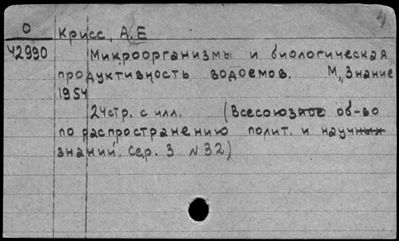 О
42990
Крисс, А.Е
Микроорганизмы и биологическая
продуктивность водоемов. М., Знание
1954
24стр. с илл. (Всесоюзное об-во
по распространению полит. и научных
знаний. Сер. 3 N 32)